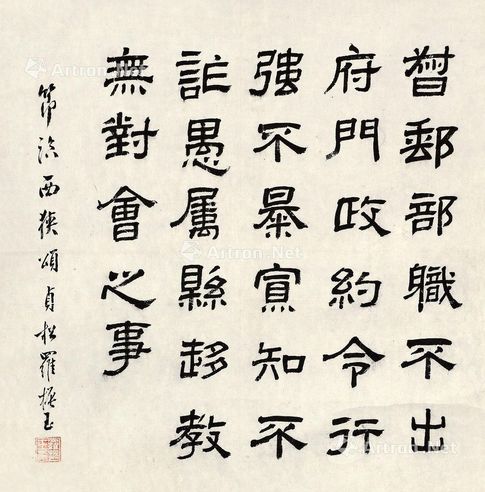 督郵部職不出
府門政約令行
強不暴寡知不
詐愚属縣趍教
無對會之事
節臨西狹頌貞松羅振玉
Artron.Net
Artron.Net
Artron.Net
Artron.Net
Artron.Net